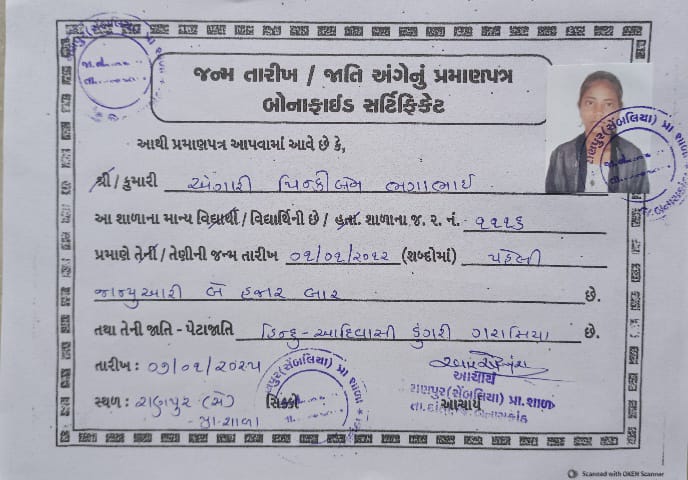 જન્મ તારીખ / જાતિ અંગેનું પ્રમાણપત્ર
બોનાફાઈડ સર્ટિફિકેટ
આથી પ્રમાણપત્ર આપવામાં આવે છે કે,
શ્રી / કુમારી અંગારી પિન્કીબેન ભગાભાઈ
આ શાળાના માન્ય વિદ્યાર્થી / વિદ્યાર્થિની છે / હતા. શાળાના જ. ર. નં. ૧૧૧૬
પ્રમાણે તેની / તેણીની જન્મ તારીખ ૦૧/૦૧/૨૦૧૨ (શબ્દોમાં) પહેલી
જાન્યુઆરી બે હજાર બાર છે.
તથા તેની જાતિ - પેટાજાતિ હિન્દુ - આદિવાસી ડુંગરી ગરાસિયા છે.
તારીખ : ૦૭/૦૧/૨૦૨૫
આચાર્ય
રાણપુર(સેંબલિયા) પ્રા. શાળા
સ્થળ : રાણપુર (સે) સિક્કો આચાર્ય
પ્રા. શાળા
Scanned with OKEN Scanner